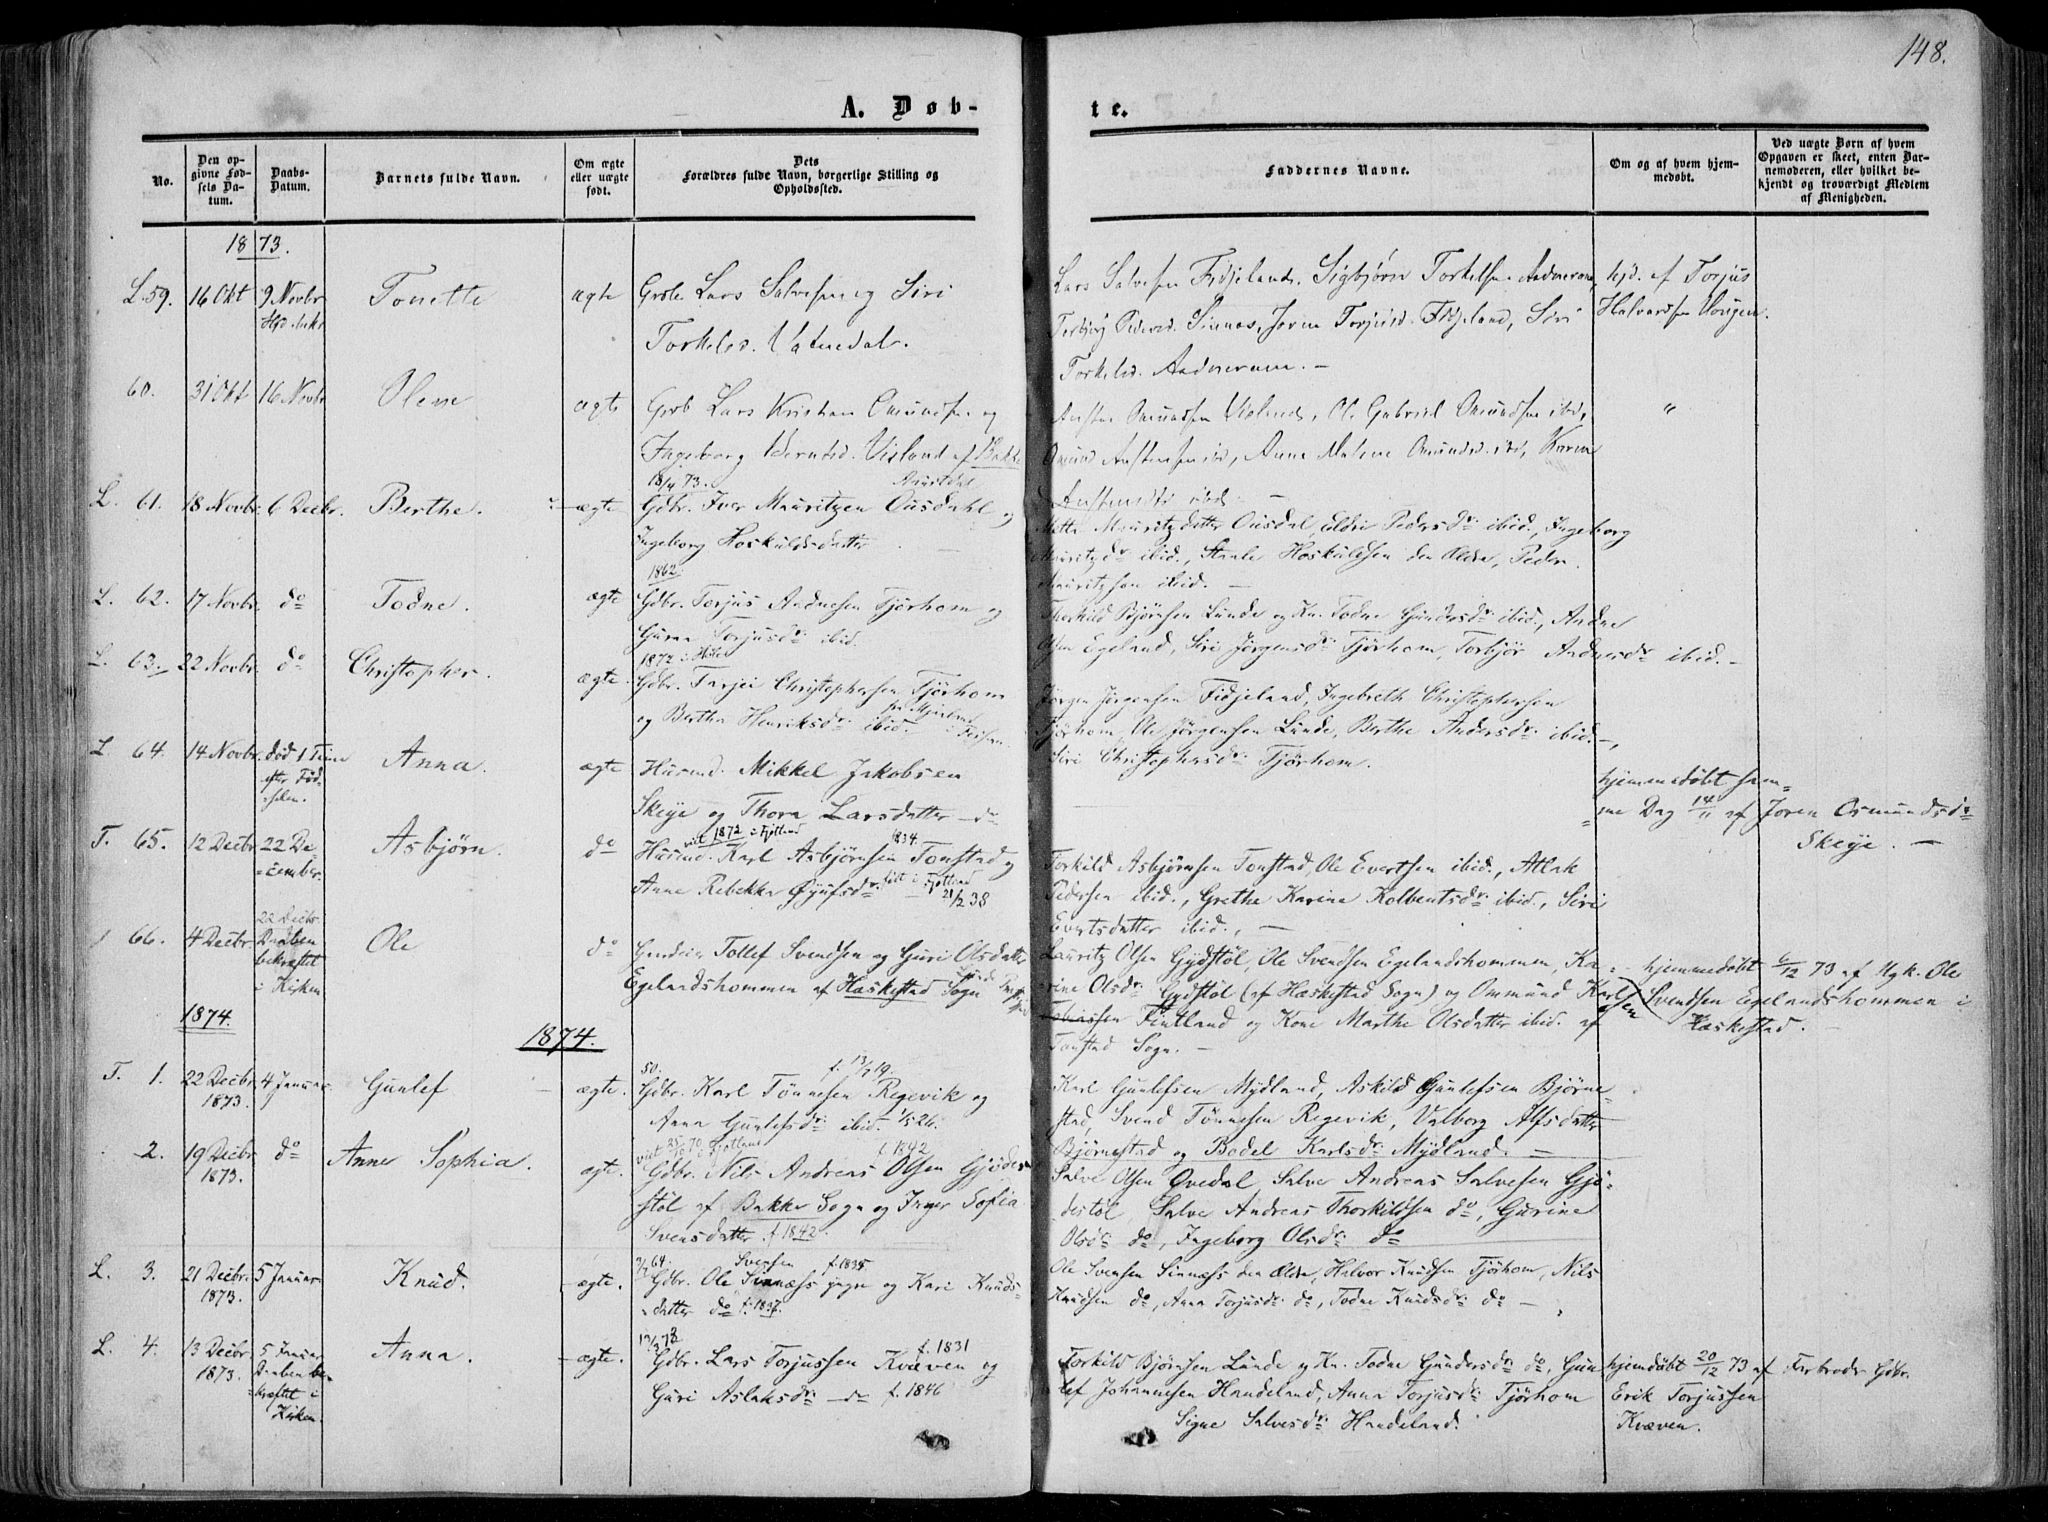 148.
A. Døb-
te.
No.
Den op-
givne Fød-
sels Da-
tum.
Daabs-
Datum.
Barnets fulde Navn.
Om ægte
eller uægte
født.
Dets
Forældres fulde Navn, borgerlige Stilling og
Opholdssted.
Faddernes Navne.
Om og af hvem hjem-
medøbt.
Ved uægte Børn af hvem
Opgaven er skeet, enten Bar-
nemoderen, eller hvilket be-
kjendt og troværdigt Medlem
af Menigheden.
1873.
L. 59. 16 Okt 9 Novbr Tonette ægte Lars Salvesen og Siri
Torkelsd. Vatnedal.
Lars Salvesen Fidjeland, Sigbjørn Torkelsen Aadneram,
Sinnes, Torjusd. Fidjeland, Siri
Torkelsd. Aadneram. –
hjd. af Torjus
Halvorsen
60. 31 Okt 16 Novbr Olene ægte Lars Kristian Omundsen og
Ingeborg Berntsd. Visland af Bakke
Omundsen Visland, Ole Gabriel Omundsen ibid,
Omund Austensen ibd, Anne Malene Omundsd. ibd, Karen
ibd. –
"
18/4 73.
L. 61. 18 Novbr. 6 Decbr. Berthe. ægte Gdbr. Iver Mauritzen Ousdahl og
Ingeborg Hoskuldsdatter
Mette Mauritzdatter Ousdal, Pedersdr. ibid., Ingeborg
Mauritzdr. ibid., Hoskuldsen den Ældre, Peder
Mauritzsen ibid. –
1862.
L. 62. 17 Novbr. do Todne. ægte Gdbr. Torjus Aadnesen Tjørhom og
Guroe Torjusdr. ibid.
Thorkild Bjørnsen Lunde og Kn. Todne Gundersdr. ibid., Andne
Olsen Egeland, Siri Jørgensdr. Tjørhom, Torbjør Aadnesdr. ibid. –
1872
L. 63. 22 Novbr. do Christopher. ægte. Gdbr. Tarjei Christophersen Tjørhom
og Berthe Henriksdr. ibid.
Jørgen Jørgensen Fidjeland, Ingebreth Christophersen
Tjørhom, Ole Jørgensen Lunde, Berthe Andersdr. ibid. –,
Siri Christophersdr. Tjørhom.
L. 64. 14 Novbr. død 1 Time
efter Fød-
selen.
Anna. ægte Husmd. Mikkel Jakobsen
Skeye og Thora Larsdatter – do
hjemmedøbt sam-
me Dag 14/11 af Joren Osmundsdr
Skeye. –
T. 65. 12 Decbr 22 De-
cember. Asbjørn. do viet 1872 i Fjotland 1834.
Husmd. Karl Asbjørnsen Tonstad og
Anne Rebekka født i Fjotland
21/2 38
Torkild Asbjørnsen Tonstad, Ole Evertsen ibid., Atlak
Pedersen ibid., Grethe Karine Kolbentsdr. ibid., Siri
Evertsdatter ibid., –
66. 4 Decbr 22 Decbr.
Daaben
bekræftet
i Kirken
Ole do Tollef Svendsen og Guri Olsdatter
Egelandshommen af Hæskestad Sogn
Lauritz Olsen Gydstøl, Ole Svendsen Egelandshommen, Ka-
rine Olsdr. Gydstøl (af Hæskestad Sogn) og Ommund Karlsen
Fintland og Kone Marthe Olsdatter ibid. af
Tonstad Sogn. –
hjemmedøbt 6/12 73 af Ugk. Ole
Svendsen Egelandshommen i
Hæskestad.
1874.
1874.
T. 1. 22 Decbr.
1873.
4 Januar. Gunlef ægte. 50. f. 13/7 19.
Gdbr. Karl Tønnesen Regevik og
Anna Gunlefsdr. ibid. 1826.
Karl Gunlefsen Mydland, Askild Gunlefsen Bjørne-
stad, Svend Tønnesen Regevik, Valborg Alfsdatter
Bjørnestad og Bodel Karlsdr. Mydland. –
2. 19 Decbr.
1873.
do Anne Sophia. ægte. f. 1842
Gdbr. Nils Andreas Olsen Gjødes-
støl af Bakke Sogn og Inger Sofia
Svensdatter. f. 1842.
Salve Olsen Øvedal, Salve Andreas Salvesen Gjø-
destøl, Salve Andreas Thorkildsen do, Gurine
Olsdr. do, Ingeborg Olsdr. do
L. 3. 21 Decbr.
1873.
5 Januar. Knud. ægte. Svensen f. 1835
Gdbr. Ole Sinnæss yngre og Kari Knuds-
datter do f. 1837.
Ole Svensen Sinnæss den Ældre, Halvor Knudsen Tjørhom, Nils
Knudsen do, Anna Torjusdr. do, Todne Knudsdr. do –
L. 4. 13 Decbr.
1873.
5 Januar
Daaben be-
kræftet i
Kirken.
Anna. ægte. f. 1831
Gdbr. Lars Torjussen Kvæven og
Guri Aslaksdr. – do f. 1846
Torkild Bjørnsen Lunde og Kn. Todne Gundersdr. do, Gun-
lef Johannesen Handeland, Anna Torjusdr. Tjørhom
Signe Salvesdr. Handeland.
hjemdøbt 20/12 73 af Farbroder Gdbr.
Erik Torjussen
Kvæven.